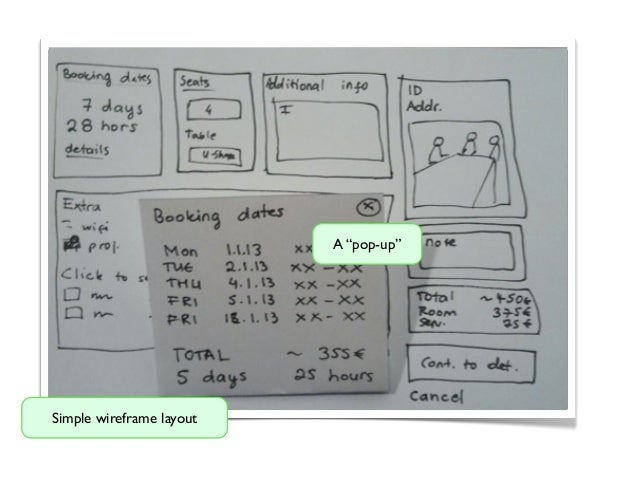 Booking dates
7 days
28 hors
details
Seats
4
Table
U-Shape
Additional info
I
ID
Addr.
Extra
wifi
proj.
Click to
Booking dates
X
Mon 1.1.13 xx
TUE 2.1.13 xx - xx
THU 4.1.13 xx - xx
FRI 5.1.13 xx - xx
FRI 18.1.13 xx - xx
TOTAL ~ 355€
5 days 25 hours
A “pop-up”
note
Total ~450€
Room 375€
Ser. 75€
Cont. to det.
Cancel
Simple wireframe layout